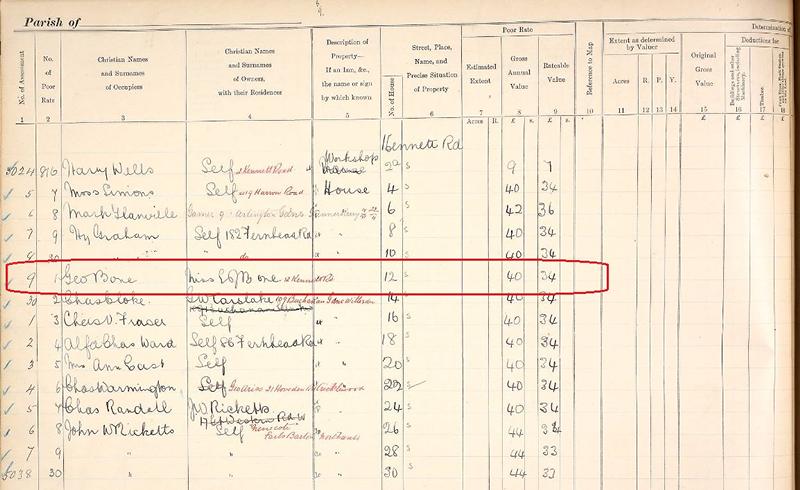 Parish of
Determination of
Poor Rate
Extent as determined by Valuer
Deductions for
No. of Assessment
No. of Poor Rate
Christian Names and Surnames of Occupiers
Christian Names and Surnames of Owners, with their Residences
Description of Property— If an Inn, &c., the name or sign by which known
No. of House
Street, Place, Name, and Precise Situation of Property
Estimated Extent
Gross Annual Value
Rateable Value
Reference to Map
Acres R. P. Y.
Original Gross Value
Buildings and other Structures, including Machinery.
Timber.
1 2 3 4 5 6 7 8 9 10 11 12 13 14 15 16 17 18
Acres R. £ s. £ s. £ £ £
Kennett Rd
5024 896 Harry Wells Self 2 Kennett Road Workshops 2a s 9 7
5 7 Moss Simons Self 419 Harrow Road House 4 s 40 34
6 8 Mark Glanville 6 s 42 36
7 9 Hy Graham Self 182 Fernhead Rd " 8 s 40 34
8 30 " do " 10 s 40 34
9 1 Geo Bone Miss E Bone 12 Kennett Rd 12 s 40 34
30 2 Chas Cloke G W Carslake 109 Buchanan Gdns Willesden 14 s 40 34
1 3 Chas V. Fraser Self " 16 s 40 34
2 4 Alfd Chas Ward Self 86 Fernhead Rd " 18 s 40 34
3 5 Mrs Ann East Self " 20 s 40 34
4 6 Chas Warmington Self Geo Ariss 21 Howden Cricklewood 22 s 40 34
5 7 Chas Randall J W Ricketts " 24 s 40 34
6 8 John W Ricketts Self Earls Barton Northants 26 s 44 34
7 9 " " " 28 s 44 33
5038 30 " " " 30 s 44 33